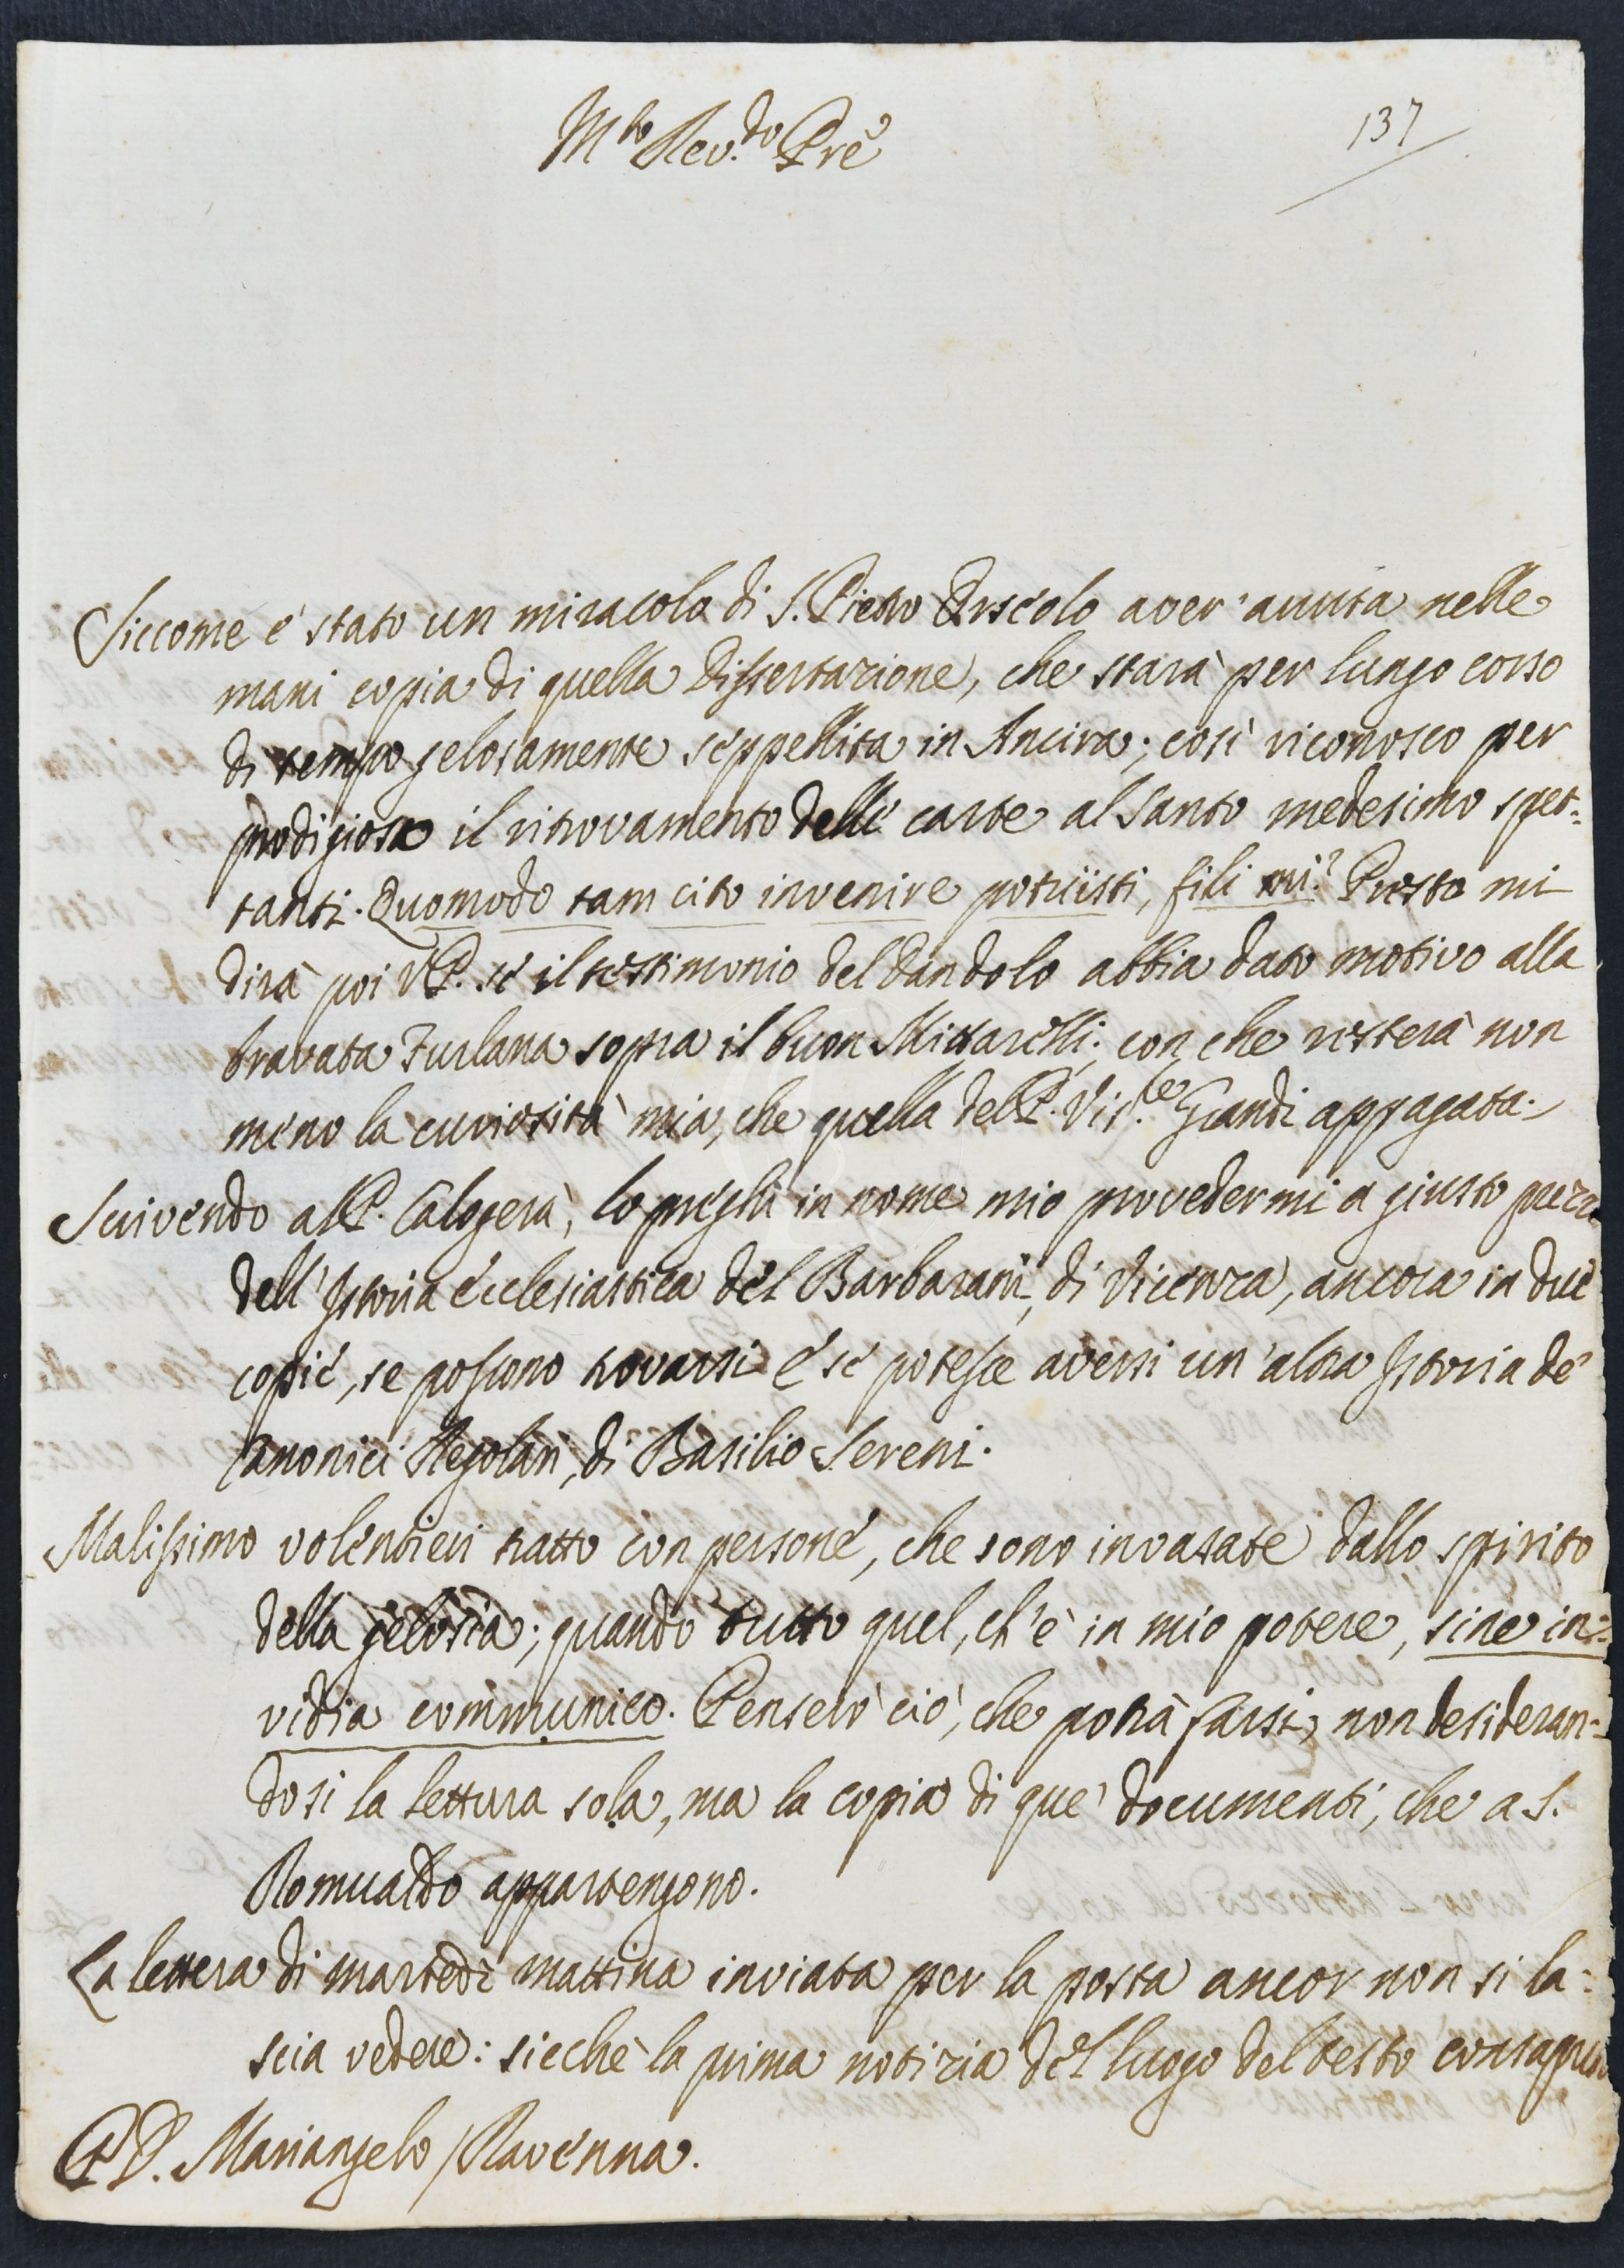 M.to Rev.do Pre
137
Siccome è stato un miracolo di S. Pietro Orseolo aver' avuta nelle
mani copia di quella Dissertazione, che starà per lungo corso
di tempo gelosamente seppellita in Ancira; così riconosco per
prodigioso il ritrovamento delle carte al Santo medesimo spet=
tanti. Quomodo tam cito invenire potuisti, fili mi? Presto mi
dirà poi V.P. se il testimonio del Dandolo abbia dato motivo alla
bravata Furlana sopra il buon Mittarelli; con che resterà non
meno la curiosità mia, che quella del P. Vis.le Grandi appagata.
Scrivendo al P. Calogerà, lo preghi in nome mio provedermi a giusto prezzo
dell' Istoria ecclesiastica del Barbarani, di Vicenza, ancora in due
copie, se possono trovarsi e se potesse aversi un' altra Istoria de'
Canonici Regolari, di Basilio Sereni.
Malissimo volentieri tratto con persone, che sono invasate dallo spirito
della gelosia; quando tutto quel, ch'è in mio potere, sine in=
vidia communico. Penserò ciò, che potrà farsi, non desideran=
dosi la lettura sola, ma la copia di que' documenti, che a S.
Romualdo appartengono.
La lettera di martedì mattina inviata per la posta ancor non si la=
scia vedere: sicchè la prima notizia del luogo del testo
P. D. Mariangelo / Ravenna.